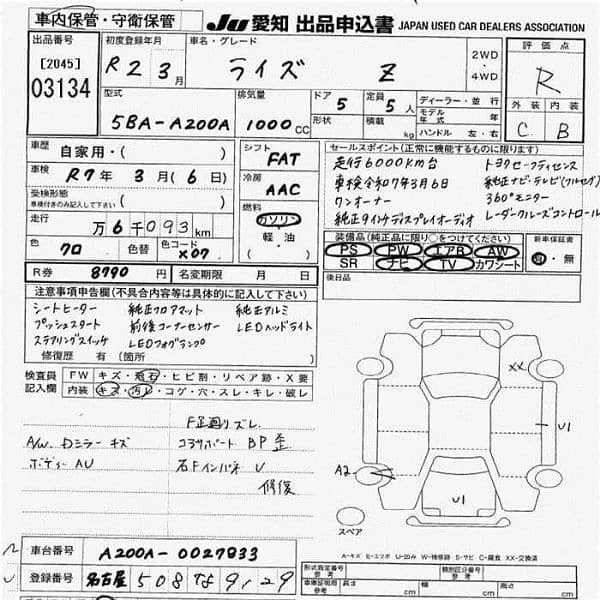 車内保管・守衛保管
JU 愛知 出品申込書 JAPAN USED CAR DEALERS ASSOCIATION
出品番号 [2045] 03134
初度登録年月 R2 3月
車名・グレード ライズ Z
2WD・4WD
評価点 R
外装 C 内装 B
型式 5BA-A200A
排気量 1000cc
ドア 5
定員 5人
形状
積載 kg
ディーラー・並行
モデル年式 年
ハンドル 左・右
車歴 自家用・( )
車検 R7年 3月(6日)
受検形態 車検付きのみ記入して下さい ( )
走行 万6千093km
色 クロ 色替 色コード X07
シフト FAT
冷房 AAC
燃料 ガソリン 軽油
セールスポイント(正常に機能するものに限る)
走行6000km台 トヨタセーフティセンス
車検令和7年3月6日 純正ナビ・テレビ(フルセグ)
ワンオーナー 360°モニター
純正9インチディスプレイオーディオ レーダークルーズコントロール
装備品(純正品に限り○をつけてください)
PS PW エアB AW
SR ナビ TV カワシート
新車保証書 有・無
R券 8790円 名変期限 月 日
後日品
注意事項申告欄(不具合内容等は具体的に記入して下さい)
シートヒーター 純正フロアマット 純正アルミ
プッシュスタート 前後コーナーセンサー LEDヘッドライト
ステアリングスイッチ LEDフォグランプ
修復歴 有(箇所 )
検査員記入欄
FW キズ・飛石・ヒビ割・リペア跡・X要
内装 キズ・汚レ・コゲ・穴・スレ・キレ・破レ
F足廻リズレ
A/W. Dミラー キズ コアサポート BP 歪
ボディー AU 右Fインパネ U
修復
XX
U1
A2
U1
スペア
A-キズ E-エクボ U-凹み W-補修跡 S-サビ C-腐食 XX-交換済
車台番号 A200A-0027833
登録番号 名古屋 508
形状番号 参考
類別区分番号 参考
車体証明用 参考 長さ cm 幅 cm 高さ cm